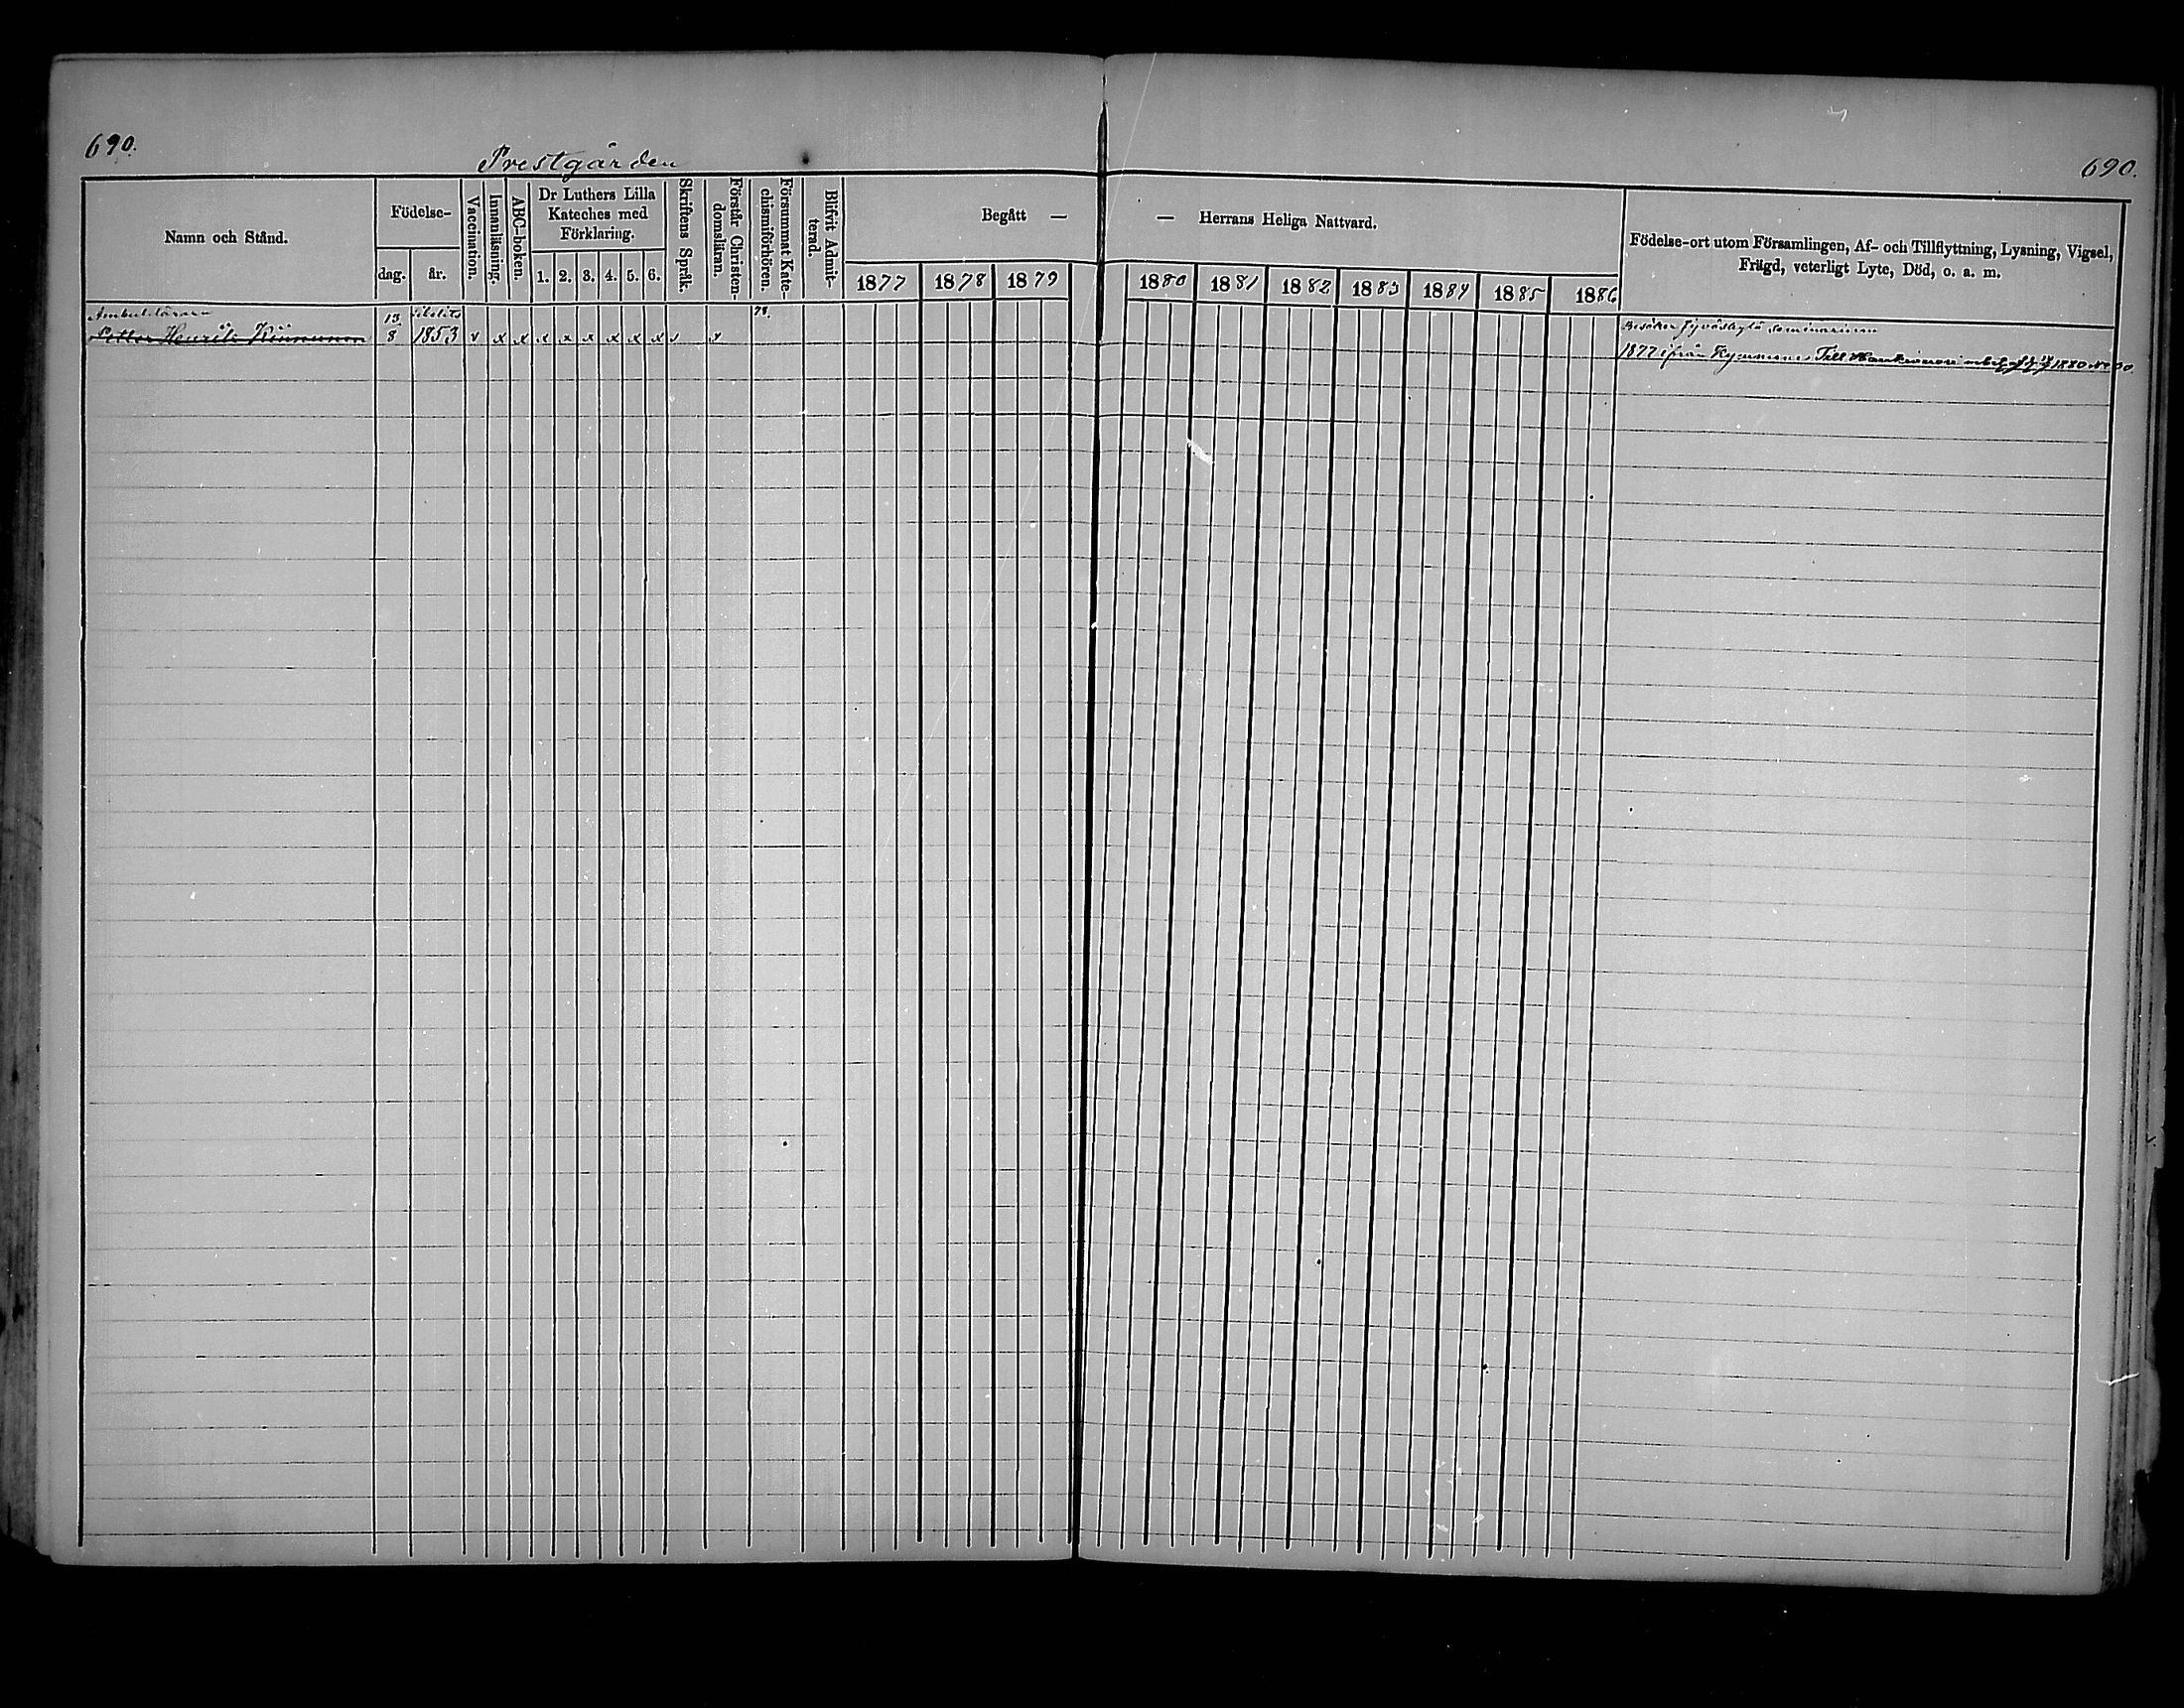 690.
690.
Prestgården
Namn och Stånd.
Födelse-
dag.
år.
Vaccination.
Innanläsning.
ABC-boken.
Dr Luthers Lilla
Kateches med
Förklaring.
1. 2. 3. 4. 5. 6.
Skriftens Språk.
Förstår Christen-
domsläran.
Försummat Kate-
chismiförhören.
Blifvit Admit-
terad.
Begått — — Herrans Heliga Nattvard.
1877 1878 1879 1880 1881 1882 1883 1884 1885 1886
Födelse-ort utom Församlingen, Af- och Tillflyttning, Lysning, Vigsel,
Frägd, veterligt Lyte, Död, o. a. m.
Ambul. lärare
13. 78.
Petter Henrik 8 1853 v x x x x x x x x
Besöker Jyväskylä Seminarium
1877 ifrån Kymmene Till 1880 No